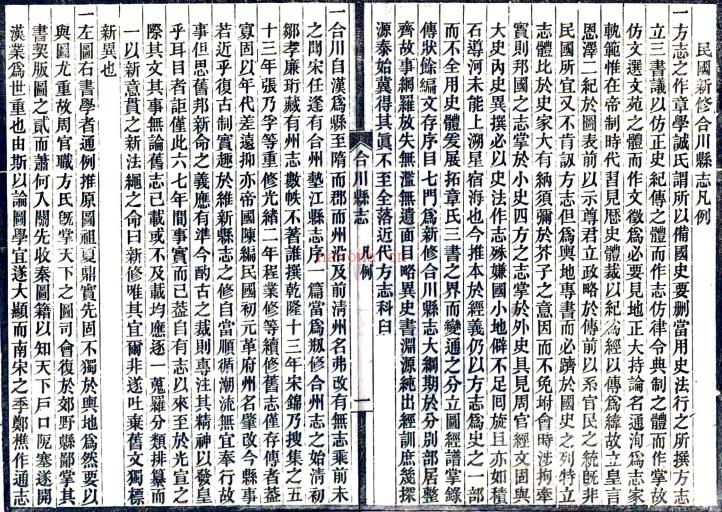 民國新修合川縣志凡例
一方志之作章學誠氏謂所以備國史要刪當用史法行之所撰方志
立三書議以仿正史紀傳之體而作志仿律令典制之體而作掌故
仿文選文苑之體而作文徵為必要見地正大持論名通洵為志家
軌範惟在帝制時代習見歷史體裁以紀為經以傳為緯故立皇言
恩澤二紀於圖表前以示尊君立政略於傳前以系官民之統旣非
民國所宜又不肯詡方志但為輿地專書而必躋於國史之列特立
志體比於史家大有納須彌於芥子之意因而不免坿會時涉拘牽
實則邦國之志掌於小史四方之志掌於外史具見周官經文固與
大史內史異撰不必以史法作志殊嫌國小地僻不足囘旋且亦如積
石導河未能上溯星宿海也今推本於經義仍以方志為史之一部
而不全用史體展拓章氏三書之界而變通之分立圖經譜掌錄
傳狀餘編文存序目七門為新修合川縣志大綱期於分別部居整
齊故事網羅放失無濫無遺面目略異史書淵源純出經訓庶幾探
源泰始冀得其眞不至全落近代方志科臼
合川縣志 凡例 一
一合川自漢為縣至隋而郡而州沿及前淸州名弗改有無志乘前未
之聞宋任逢有合州墊江縣志序一篇當為刱修合州志之始淸初
鄒孝廉珩藏有州志數帙不著誰撰乾隆十三年宋錦乃搜集之五
十三年張乃孚等重修光緒二年程業修等續修舊志僅存傳者蓋
寡固以年代差遠抑亦帝國陳編民國初元革府州名肇改今縣事
若近乎復古制實趣於維新縣志之修自當順循潮流無宜奉行故
事但思舊邦新命之義應有準今酌古之裁則專注其精神以發皇
乎耳目者詎僅此六七年間事實而已蓋自有志以來至於光宣之
際其文其事無論舊志已載或不及載均應逐一蒐羅分類排纂而
一以新意貫之新法繩之命曰新修唯其宜爾非遂吐棄舊文獨標
新異也
一左圖右書學者通例推原圖祖夏鼎實先固不獨於輿地為然要以
與圖尤重故周官職方氏旣掌天下之圖司會復於郊野縣鄙掌其
書契版圖之貳而蕭何入關先收秦圖籍以知天下戶口阨塞遂開
漢業為世重也由斯以論圖學宜遂大顯而南宋之季鄭樵作通志